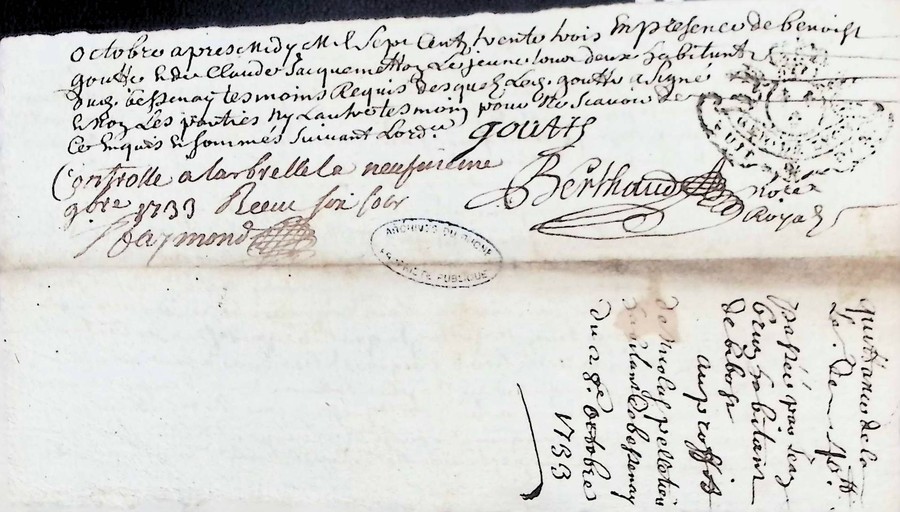 Octobre apres Midy Mil Sept Cent trente trois En presence de benoist
goutte & de Claude Jacquemetton Le jeune tous deux habitants
dud. bessenay tesmoins Requis desquels Led. goutte a signé
& Non Les parties Ny L'autre tesmoin pour Ne Scavoir de
Ce Enquis & Sommés Suivant L'ordce
goutte
Berthaud Nore
Royal
Controllé a larbrelle la neufvieme
9bre 1733 Receu six sols
Raymond
ARCHIVES DU RHONE
PROPRIETE PUBLIQUE
quittance de la
So. De
passée par Jean
habitant
de bibost
au proffit
de Nicolas pelletier
habitant de bessenay
du 28e Octobre
1733